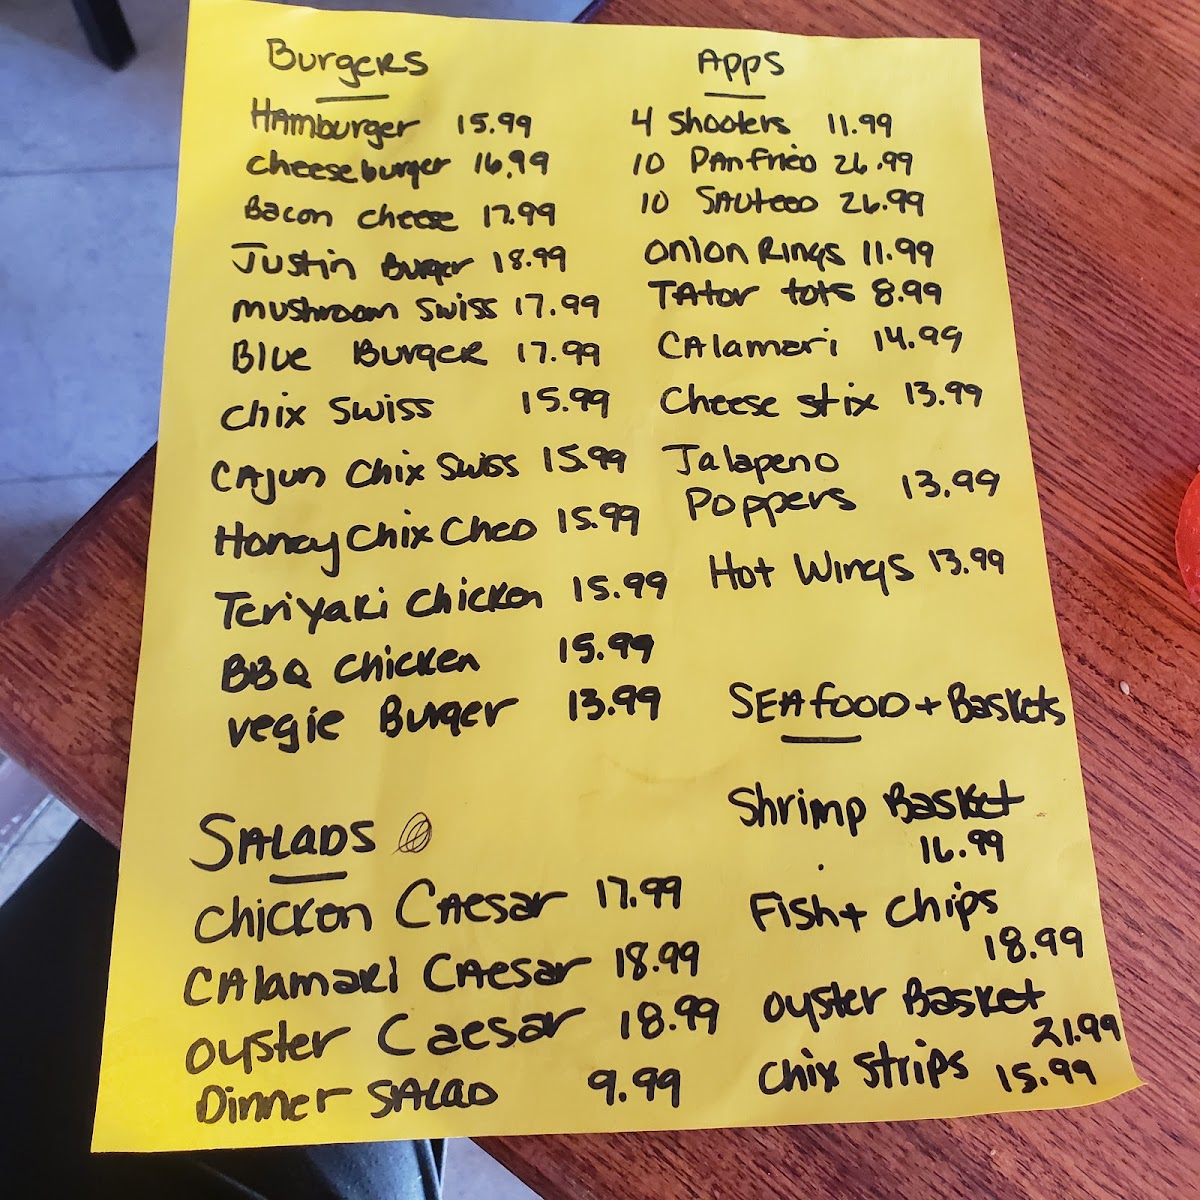 Burgers
Hamburger 15.99
cheeseburger 16.99
Bacon cheese 17.99
Justin Burger 18.99
mushroom swiss 17.99
Blue Burger 17.99
chix swiss 15.99
Cajun Chix Swiss 15.99
Honey Chix Ched 15.99
Teriyaki chicken 15.99
BBQ chicken 15.99
vegie Burger 13.99
Salads
chicken Caesar 17.99
Calamari Caesar 18.99
oyster Caesar 18.99
Dinner Salad 9.99
Apps
4 Shooters 11.99
10 Panfried 26.99
10 Sauteed 26.99
Onion Rings 11.99
Tator tots 8.99
Calamari 14.99
Cheese stix 13.99
Jalapeno
Poppers 13.99
Hot Wings 13.99
Seafood + Baskets
Shrimp Basket
16.99
Fish + chips
18.99
oyster Basket
21.99
Chix strips 15.99